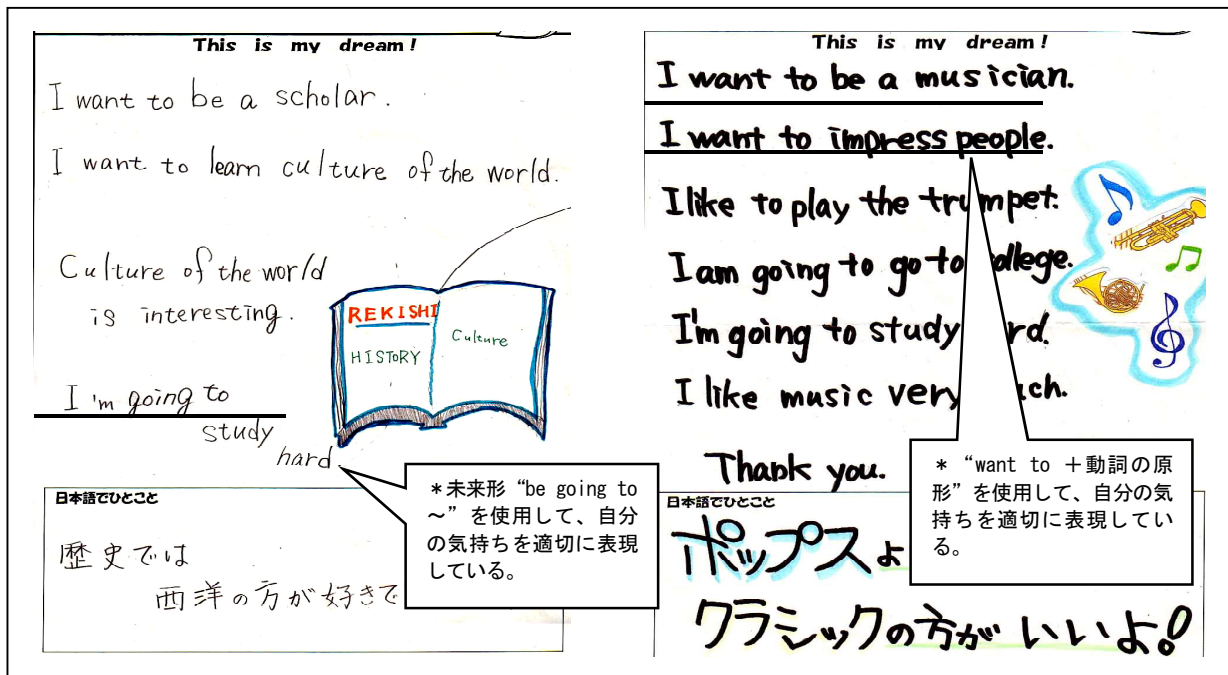 This is my dream!
I want to be a scholar.
I want to learn culture of the world.
Culture of the world
is interesting.
REKISHI
HISTORY
Culture
I'm going to
study
hard
＊未来形 “be going to
～” を使用して、自分
の気持ちを適切に表現
している。
日本語でひとこと
歴史では
西洋の方が好きで
This is my dream!
I want to be a musician.
I want to impress people.
I like to play the trumpet.
I am going to go to college.
I'm going to study rd.
I like music very ch.
Thank you.
＊ “want to ＋動詞の原
形” を使用して、自分の気
持ちを適切に表現してい
る。
日本語でひとこと
ポップスよ
クラシックの方がいいよ!